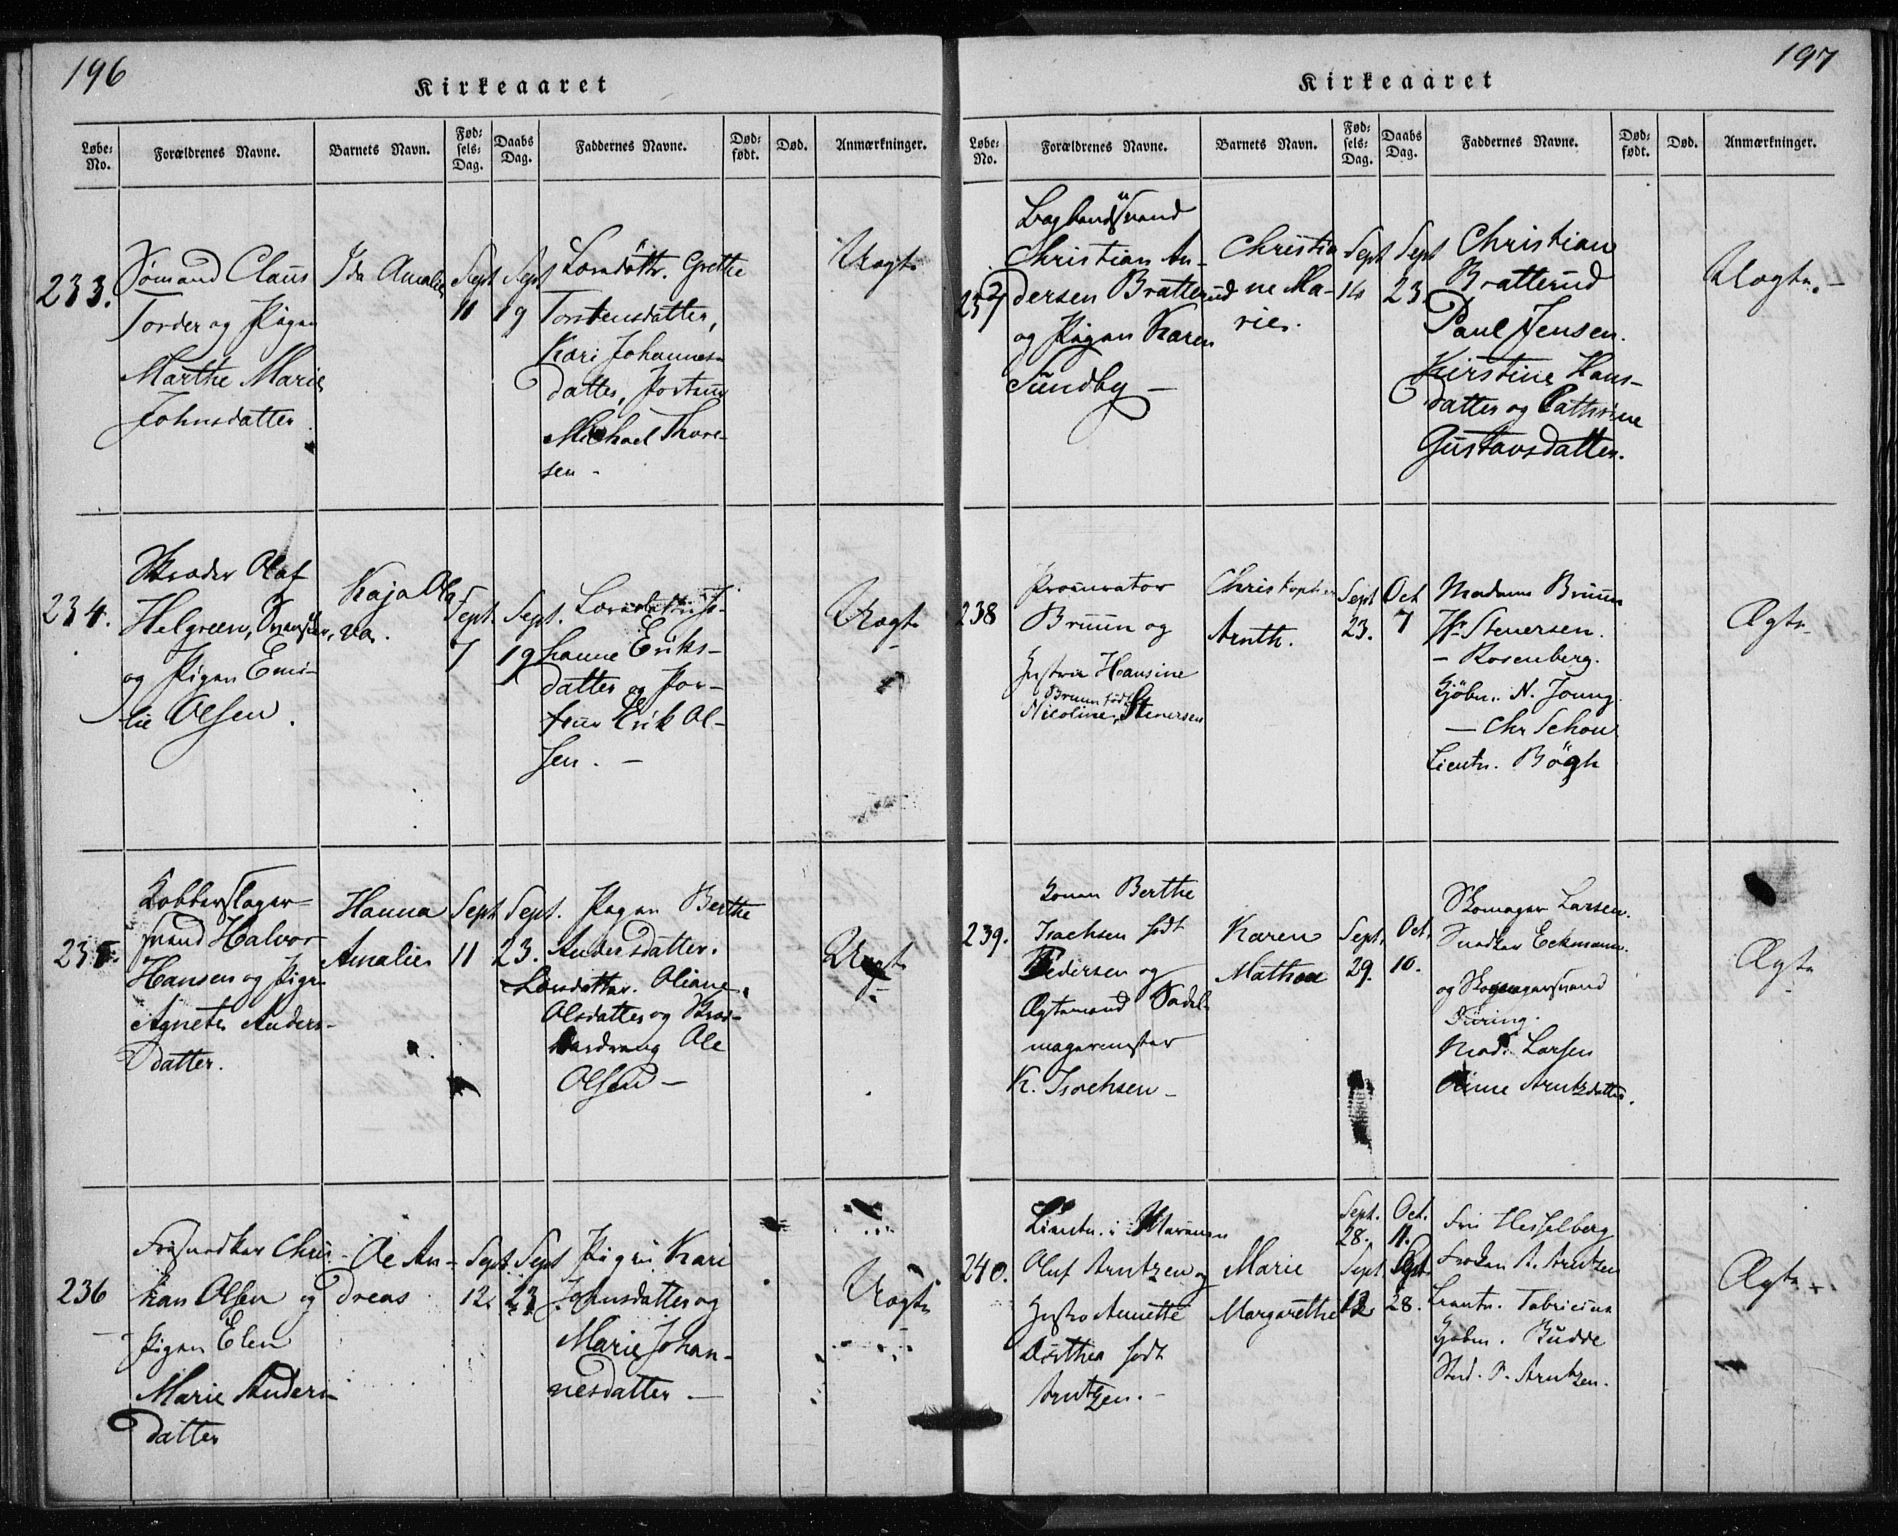 196
Kirkeaaret
Løbe-No. Forældrenes Navne. Barnets Navn. Fødsels-Dag. Daabs Dag. Faddernes Navne. Dødfødt. Død. Anmærkninger.
233.
Sømand Claus
Torder og Pigen
Marthe Marie
Johnsdatter
Ida Amalie
Sept
11
Sept.
19
Grethe
Torstensdatter,
Kari Johannes-
datter,
Michael Thore-
sen -
Uægte
234.
Skræder Olof
Helgreen, Svensker,
og Pigen Emi-
lie Olsen.
Kaja Ola
va.
Sept.
7
Sept.
19
Jo-
hanne Eriks-
datter og
Erik Ol-
sen. -
Uægte
235.
Kobberslager-
svend Halvor
Hansen og Pige
Agnete Anders-
datter.
Hanna
Amalie
Sept
11
Sept.
23.
Pigen Berthe
Andersdatter.
Oliane
Olsdatter og
Ole
Olsen -
Uægte
236
Chri-
stian Olsen og
Pigen Elen
Marie Anders-
datter
Ole An-
dreas
Sept
12
Sept
23
Pige Kari
Johnsdatter og
Marie Johan-
nesdatter -
Uægte
197
Kirkeaaret
Løbe-No. Forældrenes Navne. Barnets Navn. Fødsels-Dag. Daabs Dag. Faddernes Navne. Dødfødt. Død. Anmærkninger.
237
Christian An-
dersen Bratterud
og Pigen Karen
Sundby -
Christia
ne Ma-
rie.
Sept
14
Sept
23.
Christian
Bratterud
Paul Jensen.
Kirstine Hans-
datter og Cathrine
Gustavsdatter.
Uægte. -
238
Procurator
Bruun og
Hustru Hansine
Bruun født
Nicoline, Stenersen
Christopher
Arnth.
Sept
23.
Oct
7
Madame Bruun
Hr Stenersen.
- Rosenberg.
Kjøbm. N. Joung.
- Chr Schou
Lieutn. Bögh
Ægte
239.
Konen Berthe
Isachsen født
Pedersen og
Ægtemand Sadel-
magermester
K. Isachsen -
Karen
Mathea
Sept.
29.
Oct.
10.
Skomager Larsen.
Snedker Eckmann.
og Skomagersvend
Düring.
Mad. Larsen
Anne Arntzdatter.
Ægte
240.
Lieutn. i Marinen
Oluf Arntzen og
Hustro Annette
Dorthea født
Arntzen. -
Marie
Margarethe
Sept.
28.
Oct.
11.
Sept
12
Sept
28.
Fru Hesselberg
Frøken A. Arntzen
Lieutn. Fabricius
Kjøbm. Budde
Stud. P. Arntzen.
Ægte